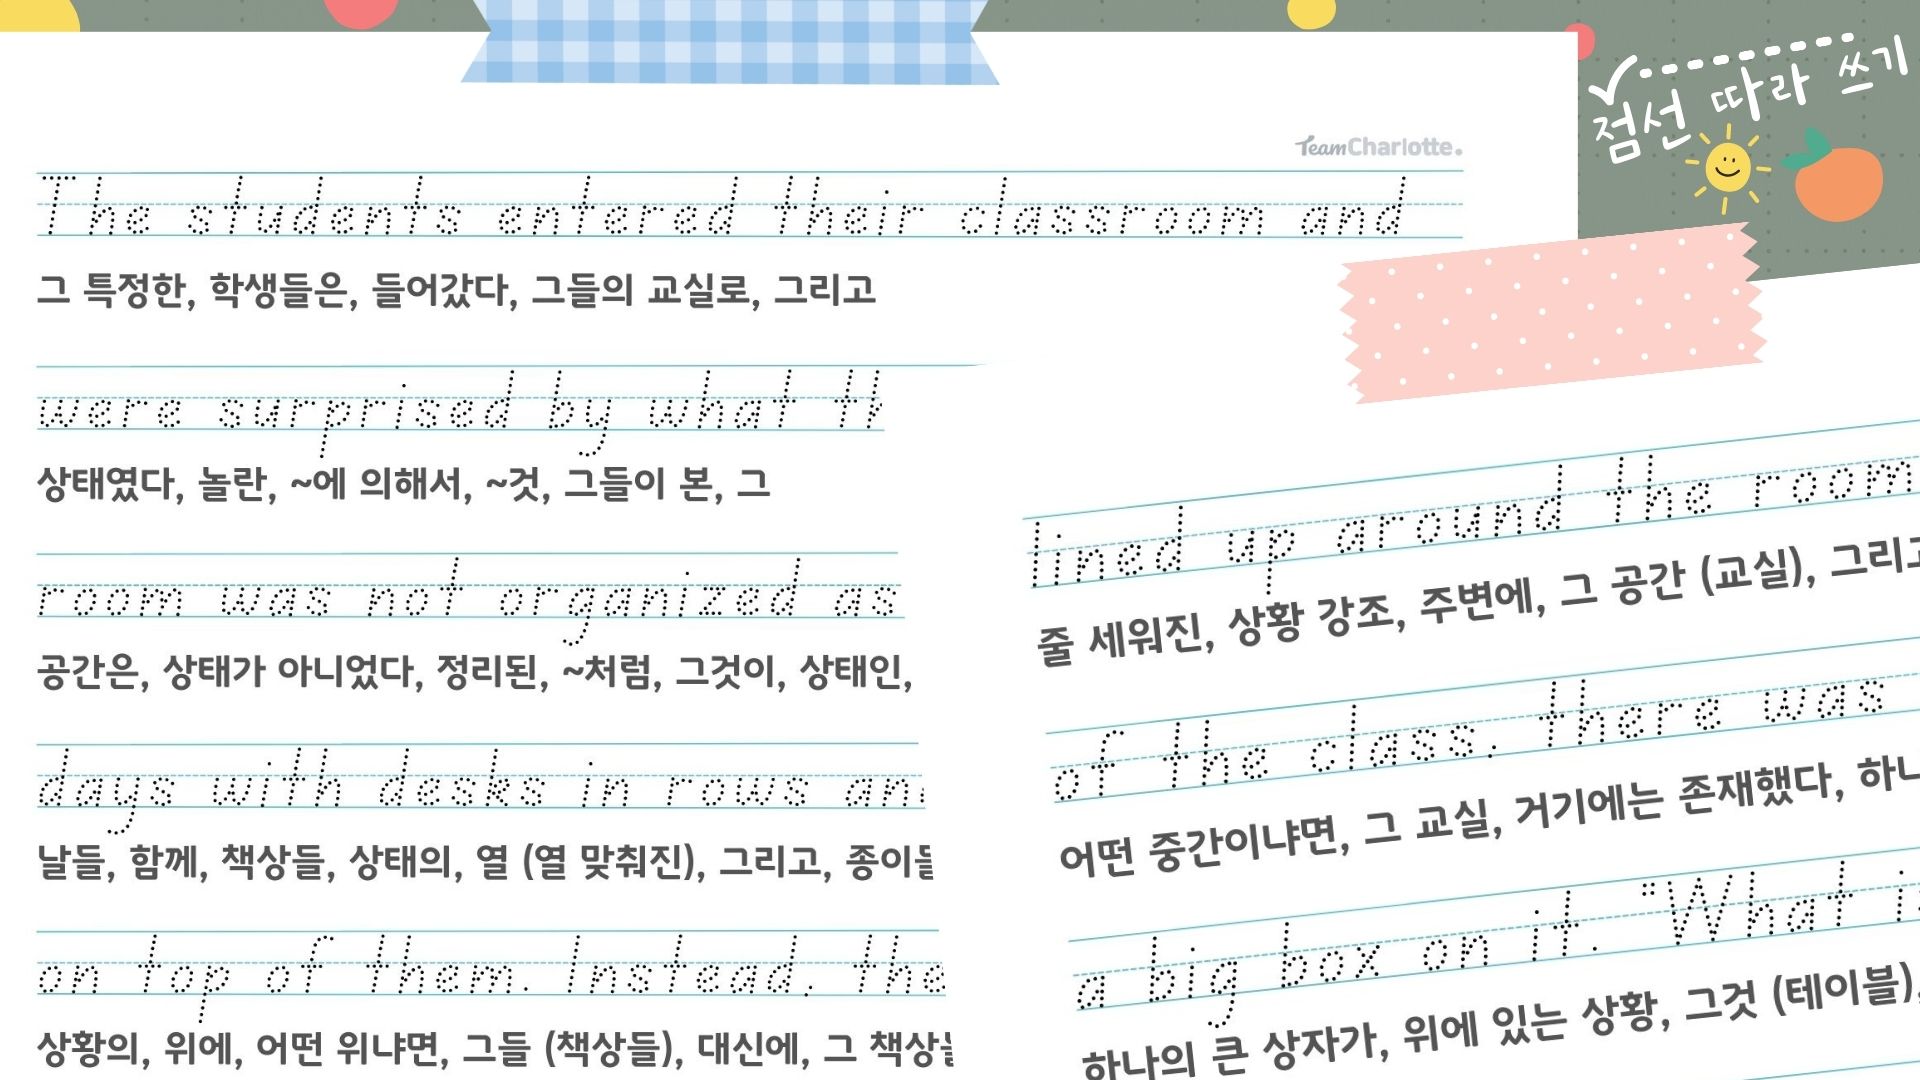 점선 따라 쓰기
TeamCharlotte.
The students entered their classroom and
그 특정한, 학생들은, 들어갔다, 그들의 교실로, 그리고
were surprised by what th
상태였다, 놀란, ~에 의해서, ~것, 그들이 본, 그
room was not organized as
공간은, 상태가 아니었다, 정리된, ~처럼, 그것이, 상태인,
days with desks in rows an
날들, 함께, 책상들, 상태의, 열 (열 맞춰진), 그리고, 종이들
on top of them. Instead, the
상황의, 위에, 어떤 위냐면, 그들 (책상들), 대신에, 그 책상들
lined up around the room
줄 세워진, 상황 강조, 주변에, 그 공간 (교실), 그리고
of the class, there was
어떤 중간이냐면, 그 교실, 거기에는 존재했다, 하나
a big box on it. "What i
하나의 큰 상자가, 위에 있는 상황, 그것 (테이블),